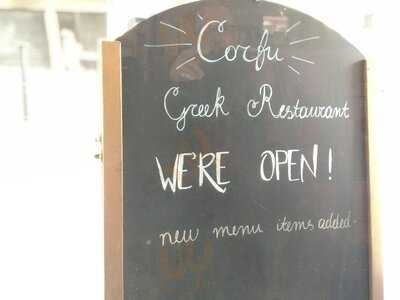 Corfu
Greek Restaurant
WE'RE OPEN!
new menu items added.